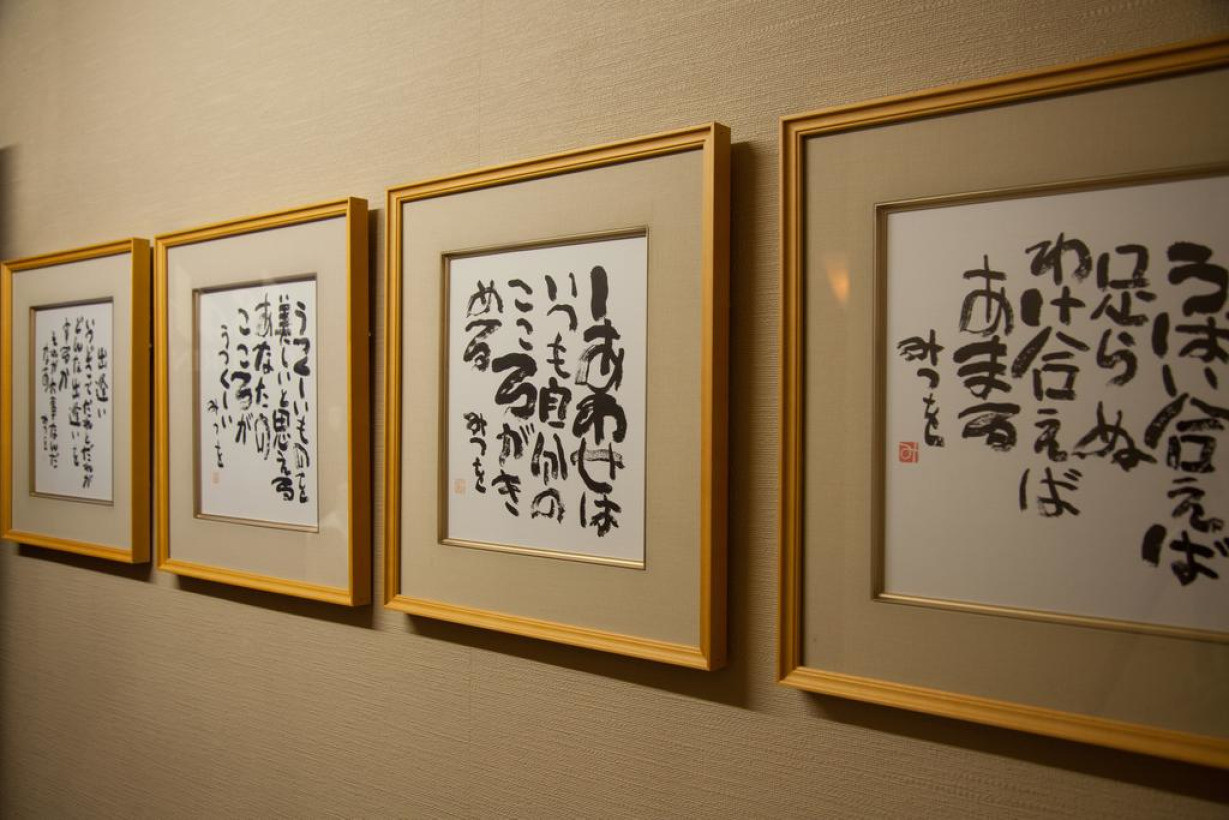 うばい合えば
足らぬ
わけ合えば
あまる
みつを
しあわせは
いつも自分の
こころがき
める
みつを
うつくしいものを
美しいと思える
あなたの
こころが
うつくしい
みつを
出逢い
いつどこでだれとだれが
どんな出逢いを
するか
それが大事なんだ
なあ
みつを